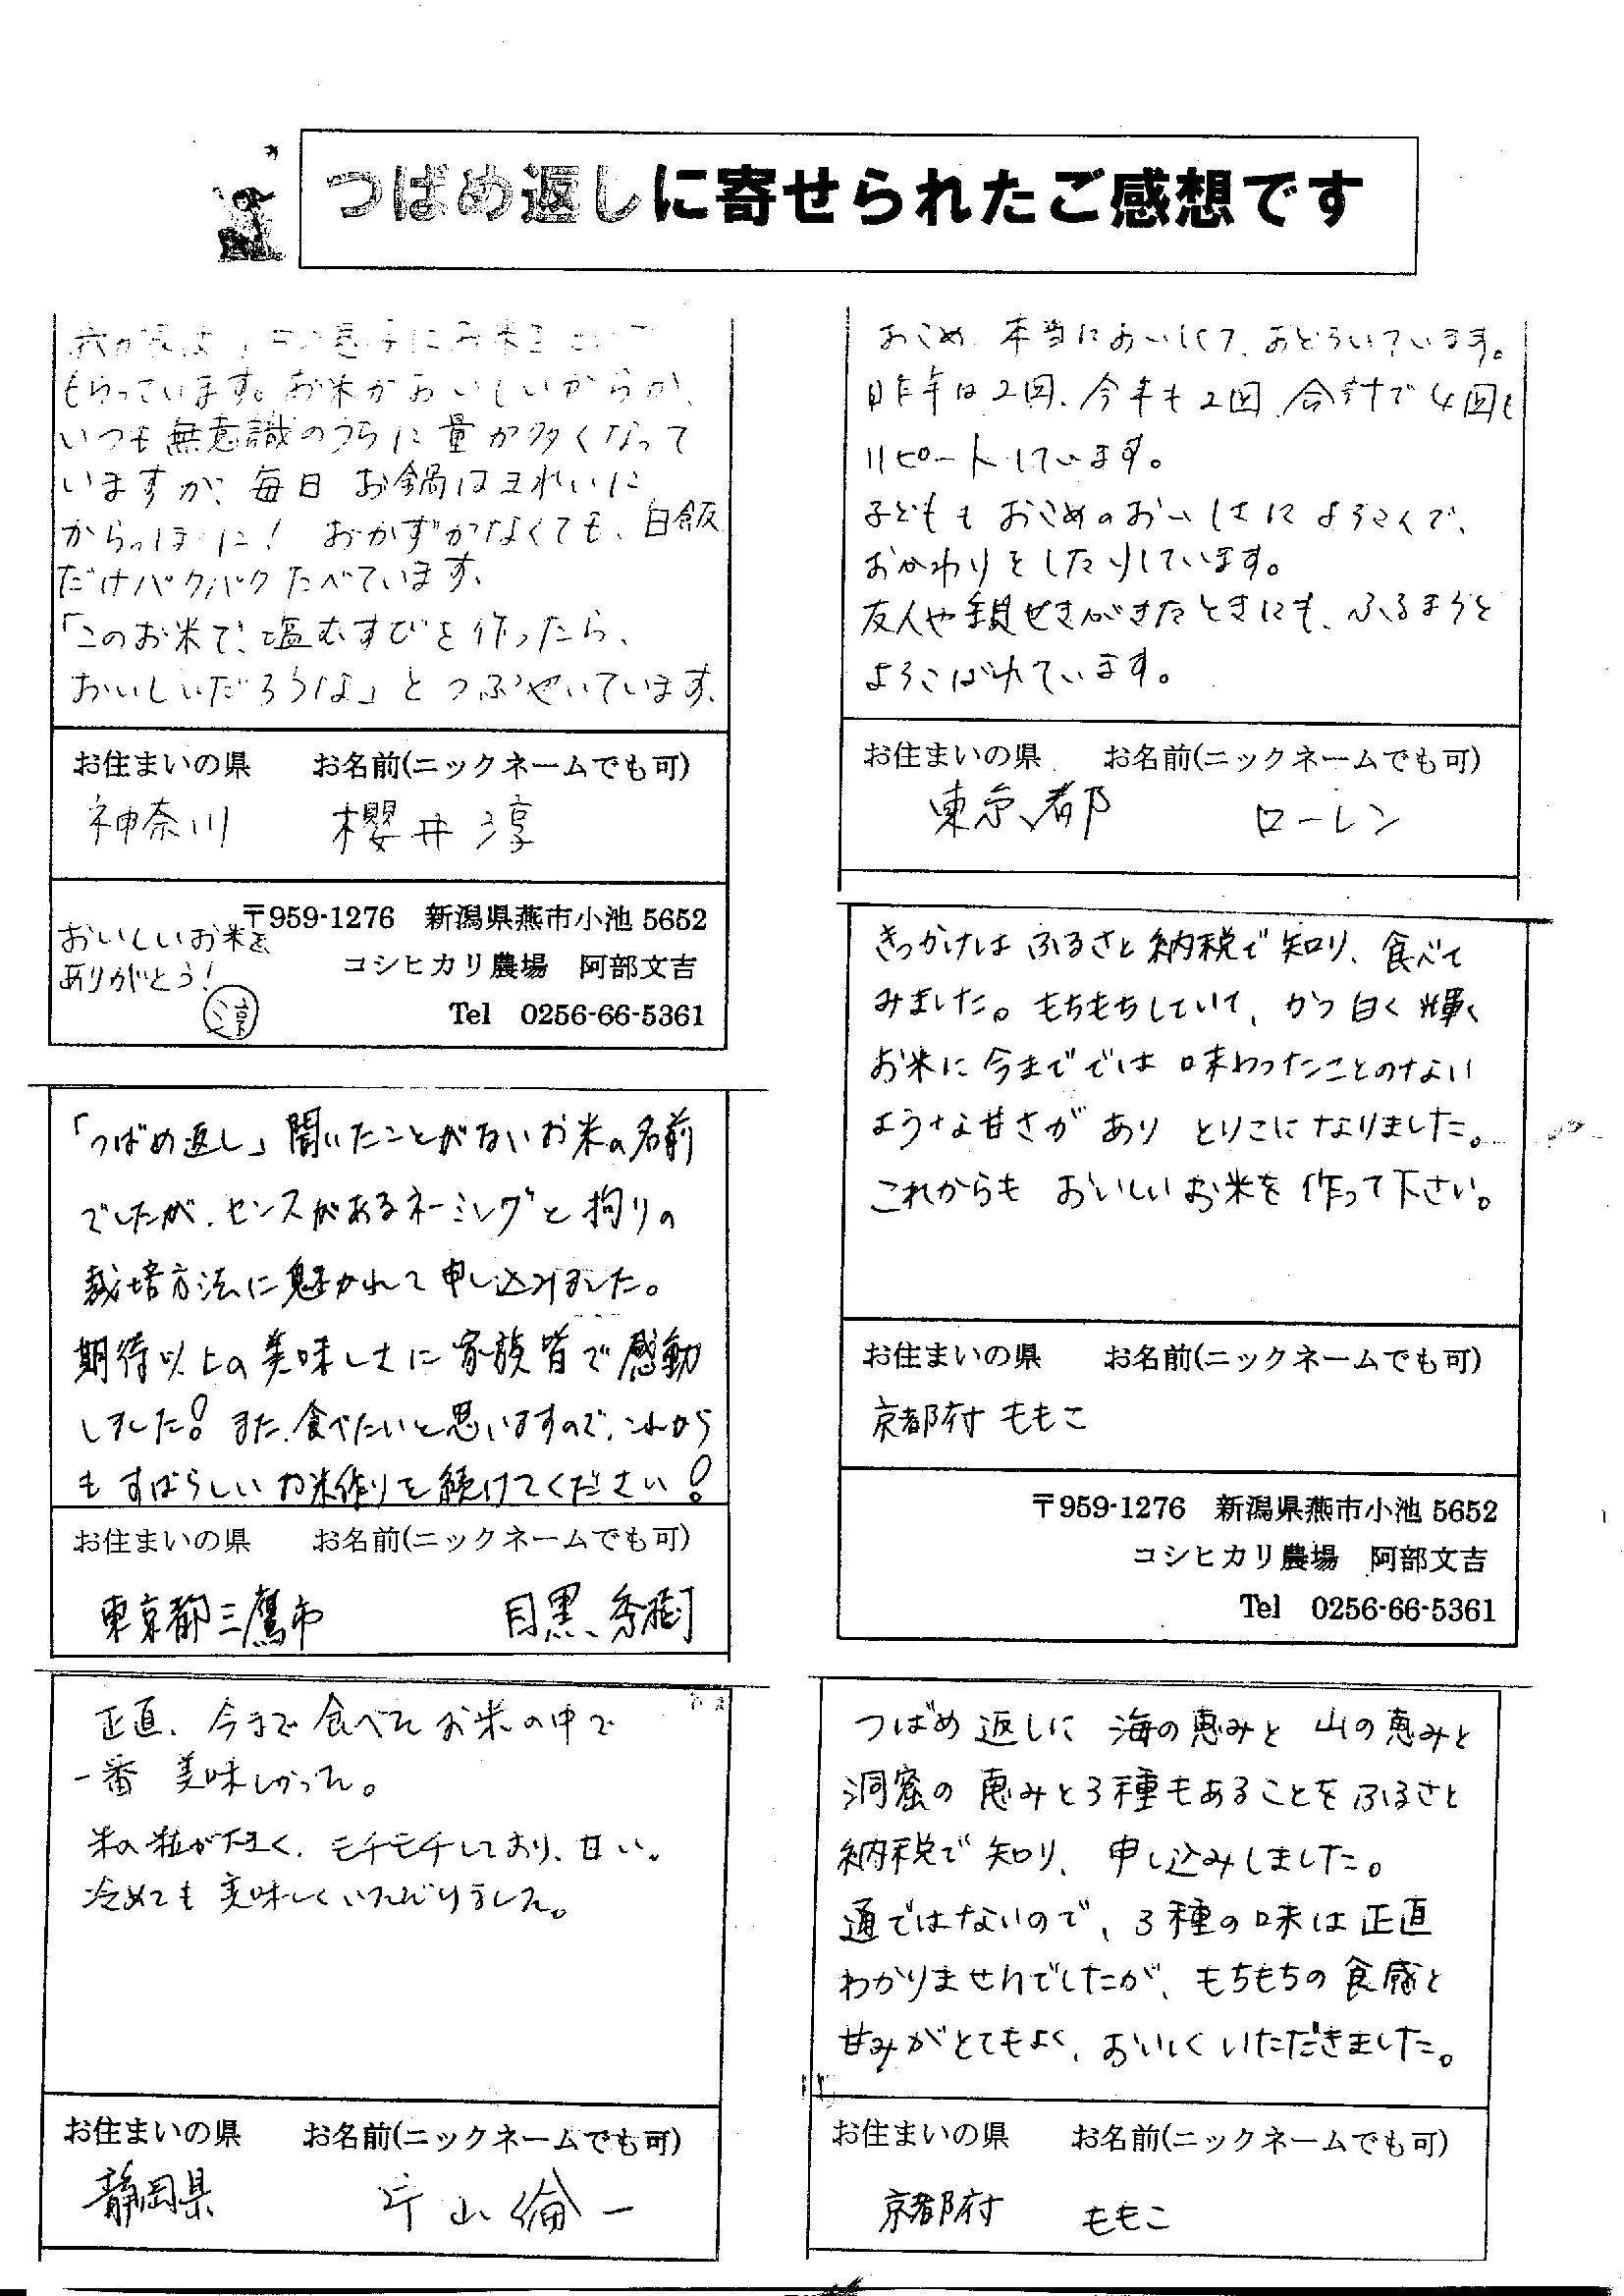 つばめ返しに寄せられたご感想です
我が家は、 息子にお米を
もらっています。お米がおいしいからか、
いつも無意識のうちに量が多くなって
いますが、毎日 お鍋はきれいに
からっぽに! おかずがなくても、白飯
だけパクパクたべています。
「このお米で、塩むすびを作ったら、
おいしいだろうな」と つぶやいています。
お住まいの県 お名前(ニックネームでも可)
神奈川 櫻井 淳
おいしいお米を
ありがとう!
淳
〒959-1276 新潟県燕市小池 5652
コシヒカリ農場 阿部文吉
Tel 0256-66-5361
「つばめ返し」聞いたことがないお米の名前
でしたが、センスがあるネーミングと拘りの
栽培方法に魅かれて申し込みました。
期待以上の美味しさに家族皆で感動
しました! また、食べたいと思いますので、これから
もすばらしいお米作りを続けてください!
お住まいの県 お名前(ニックネームでも可)
東京都三鷹市 目黒 秀樹
正直、今まで食べたお米の中で
一番 美味しかった。
米の粒が大きく、モチモチしており、甘い。
冷めても美味しくいただけました。
お住まいの県 お名前(ニックネームでも可)
静岡県 片山 倫一
おこめ、本当においしくて、おどろいています。
昨年は2回、今年も2回、合計で4回も
リピートしています。
子どもも おこめのおいしさに よろこんで、
おかわりをしたりしています。
友人や親せきがきたときにも、ふるまうと
よろこばれています。
お住まいの県 お名前(ニックネームでも可)
東京都 ローレン
きっかけは ふるさと納税で知り、食べて
みました。もちもちしていて、かつ白く輝く
お米に今まででは味わったことのない
ような甘さがあり とりこになりました。
これからも おいしいお米を作って下さい。
お住まいの県 お名前(ニックネームでも可)
京都府 ももこ
〒959-1276 新潟県燕市小池 5652
コシヒカリ農場 阿部文吉
Tel 0256-66-5361
つばめ返しに 海の恵みと 山の恵みと
洞窟の恵みと3種もあることをふるさと
納税で知り、申し込みしました。
通ではないので、3種の味は正直
わかりませんでしたが、もちもちの食感と
甘みがとてもよく、おいしくいただきました。
お住まいの県 お名前(ニックネームでも可)
京都府 ももこ